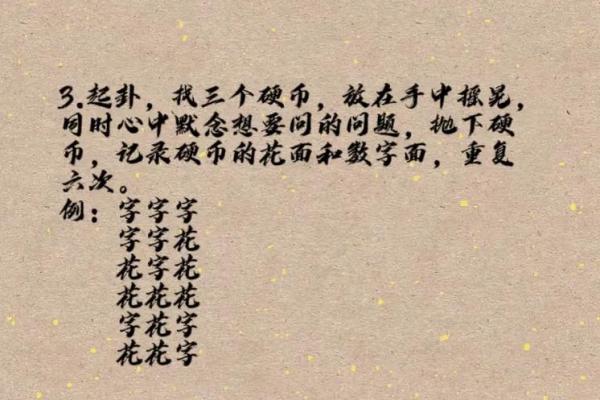 3.起卦，找三个硬币，放在手中摇晃，
同时心中默念想要问的问题，抛下硬
币，记录硬币的花面和数字面，重复
六次。
例：字字字
字字花
花字花
花花花
字花字
花花字